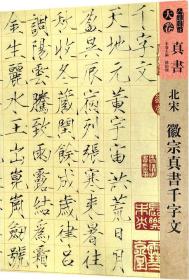 真書
天卷
北宋 徽宗真書千字文
千字文
天地元黃宇宙洪荒日月
盈昃辰宿列張寒來暑往
秋收冬藏閏餘成歲律呂
調陽雲騰致雨露結為霜
金生麗水玉出崑岡